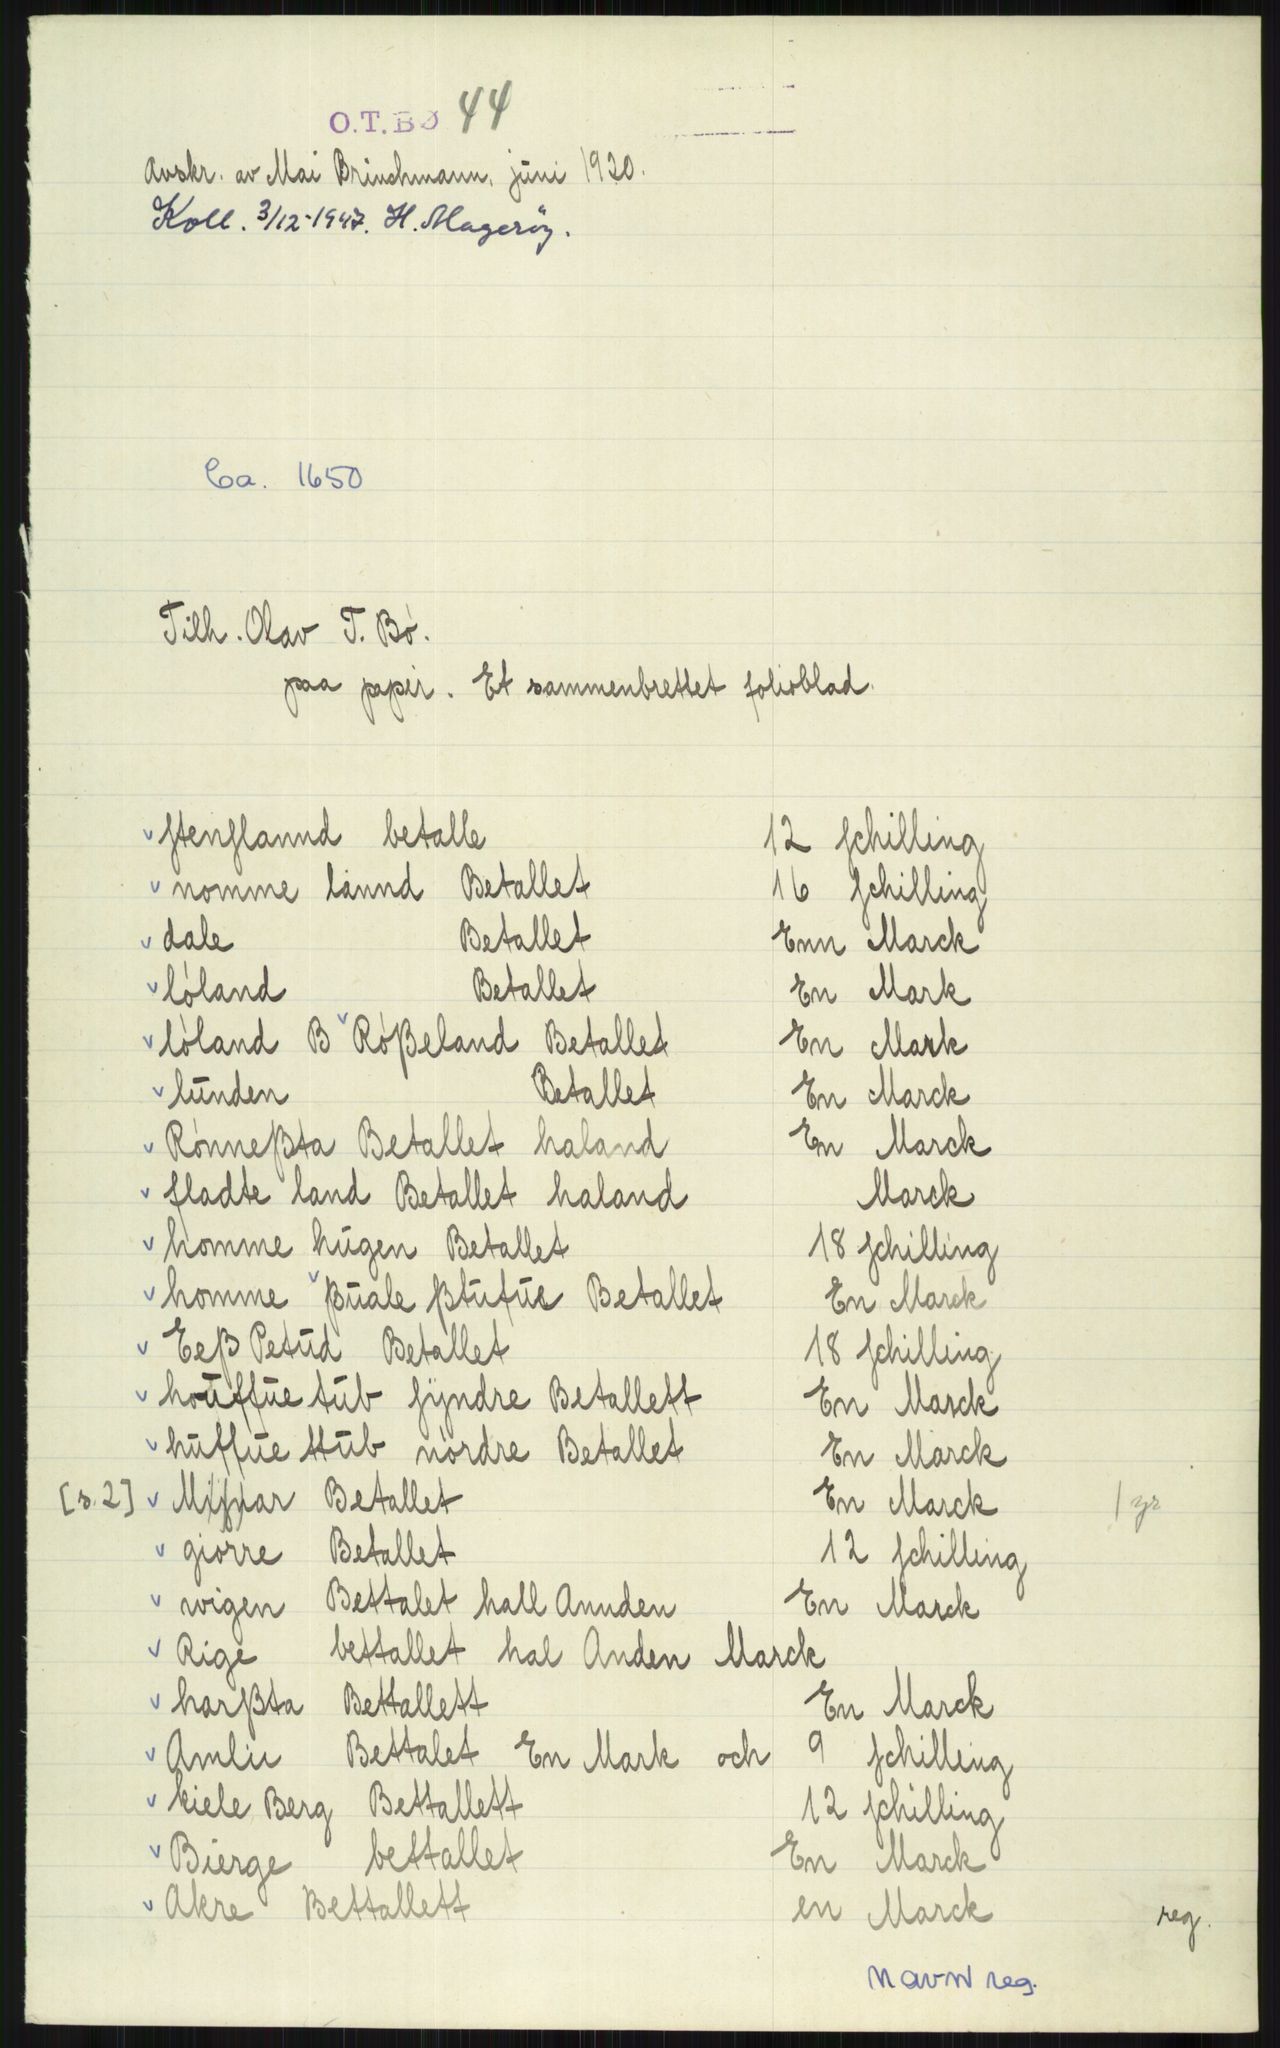 O.T.BØ 44
Avskr. av Mai Brinchmann, juni 1920.
Koll. 3/12-1947. H. Magerøy.
Ca. 1650
Tilh. Olav T. Bø.
paa papir. Et sammenbrettet folioblad.
ſtenſlannd betalle 12 ſchilling
nomme lannd Betallet 16 ſchilling
dale Betallet Enn Marck
lóland Betallet En Mark
lóland B Róßeland Betallet En Mark
lunden Betallet En Marck
Rónneßta Betallet haland En Marck
fladte land Betallet haland Marck
homme hugen Betallet 18 ſchilling
homme ßuale ßtufue Betallet En Marck
Eeß Petud Betallet 18 ſchilling
houffue tub ſyndre Betallett En Marck
huffue ttub nordre Betallet En Marck
[s. 2] Betallet En Marck 1 yr
giorre Betallet 12 ſchilling
wigen Bettalet hall Annden En Marck
Rige bettallet hal Anden Marck
harßta Bettallett En Marck
Amlii Bettalet En Mark och 9 ſchilling
kiele Berg Bettallett 12 ſchilling
Bierge bettallet En Marck
Akre Bettallett en Marck reg.
navn reg.